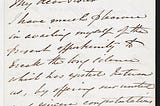 My dear Sister
I have much pleasure
in availing myself of the
present opportunity to
break the long silence
which has existed between
us, by offering my
sincere congratulations